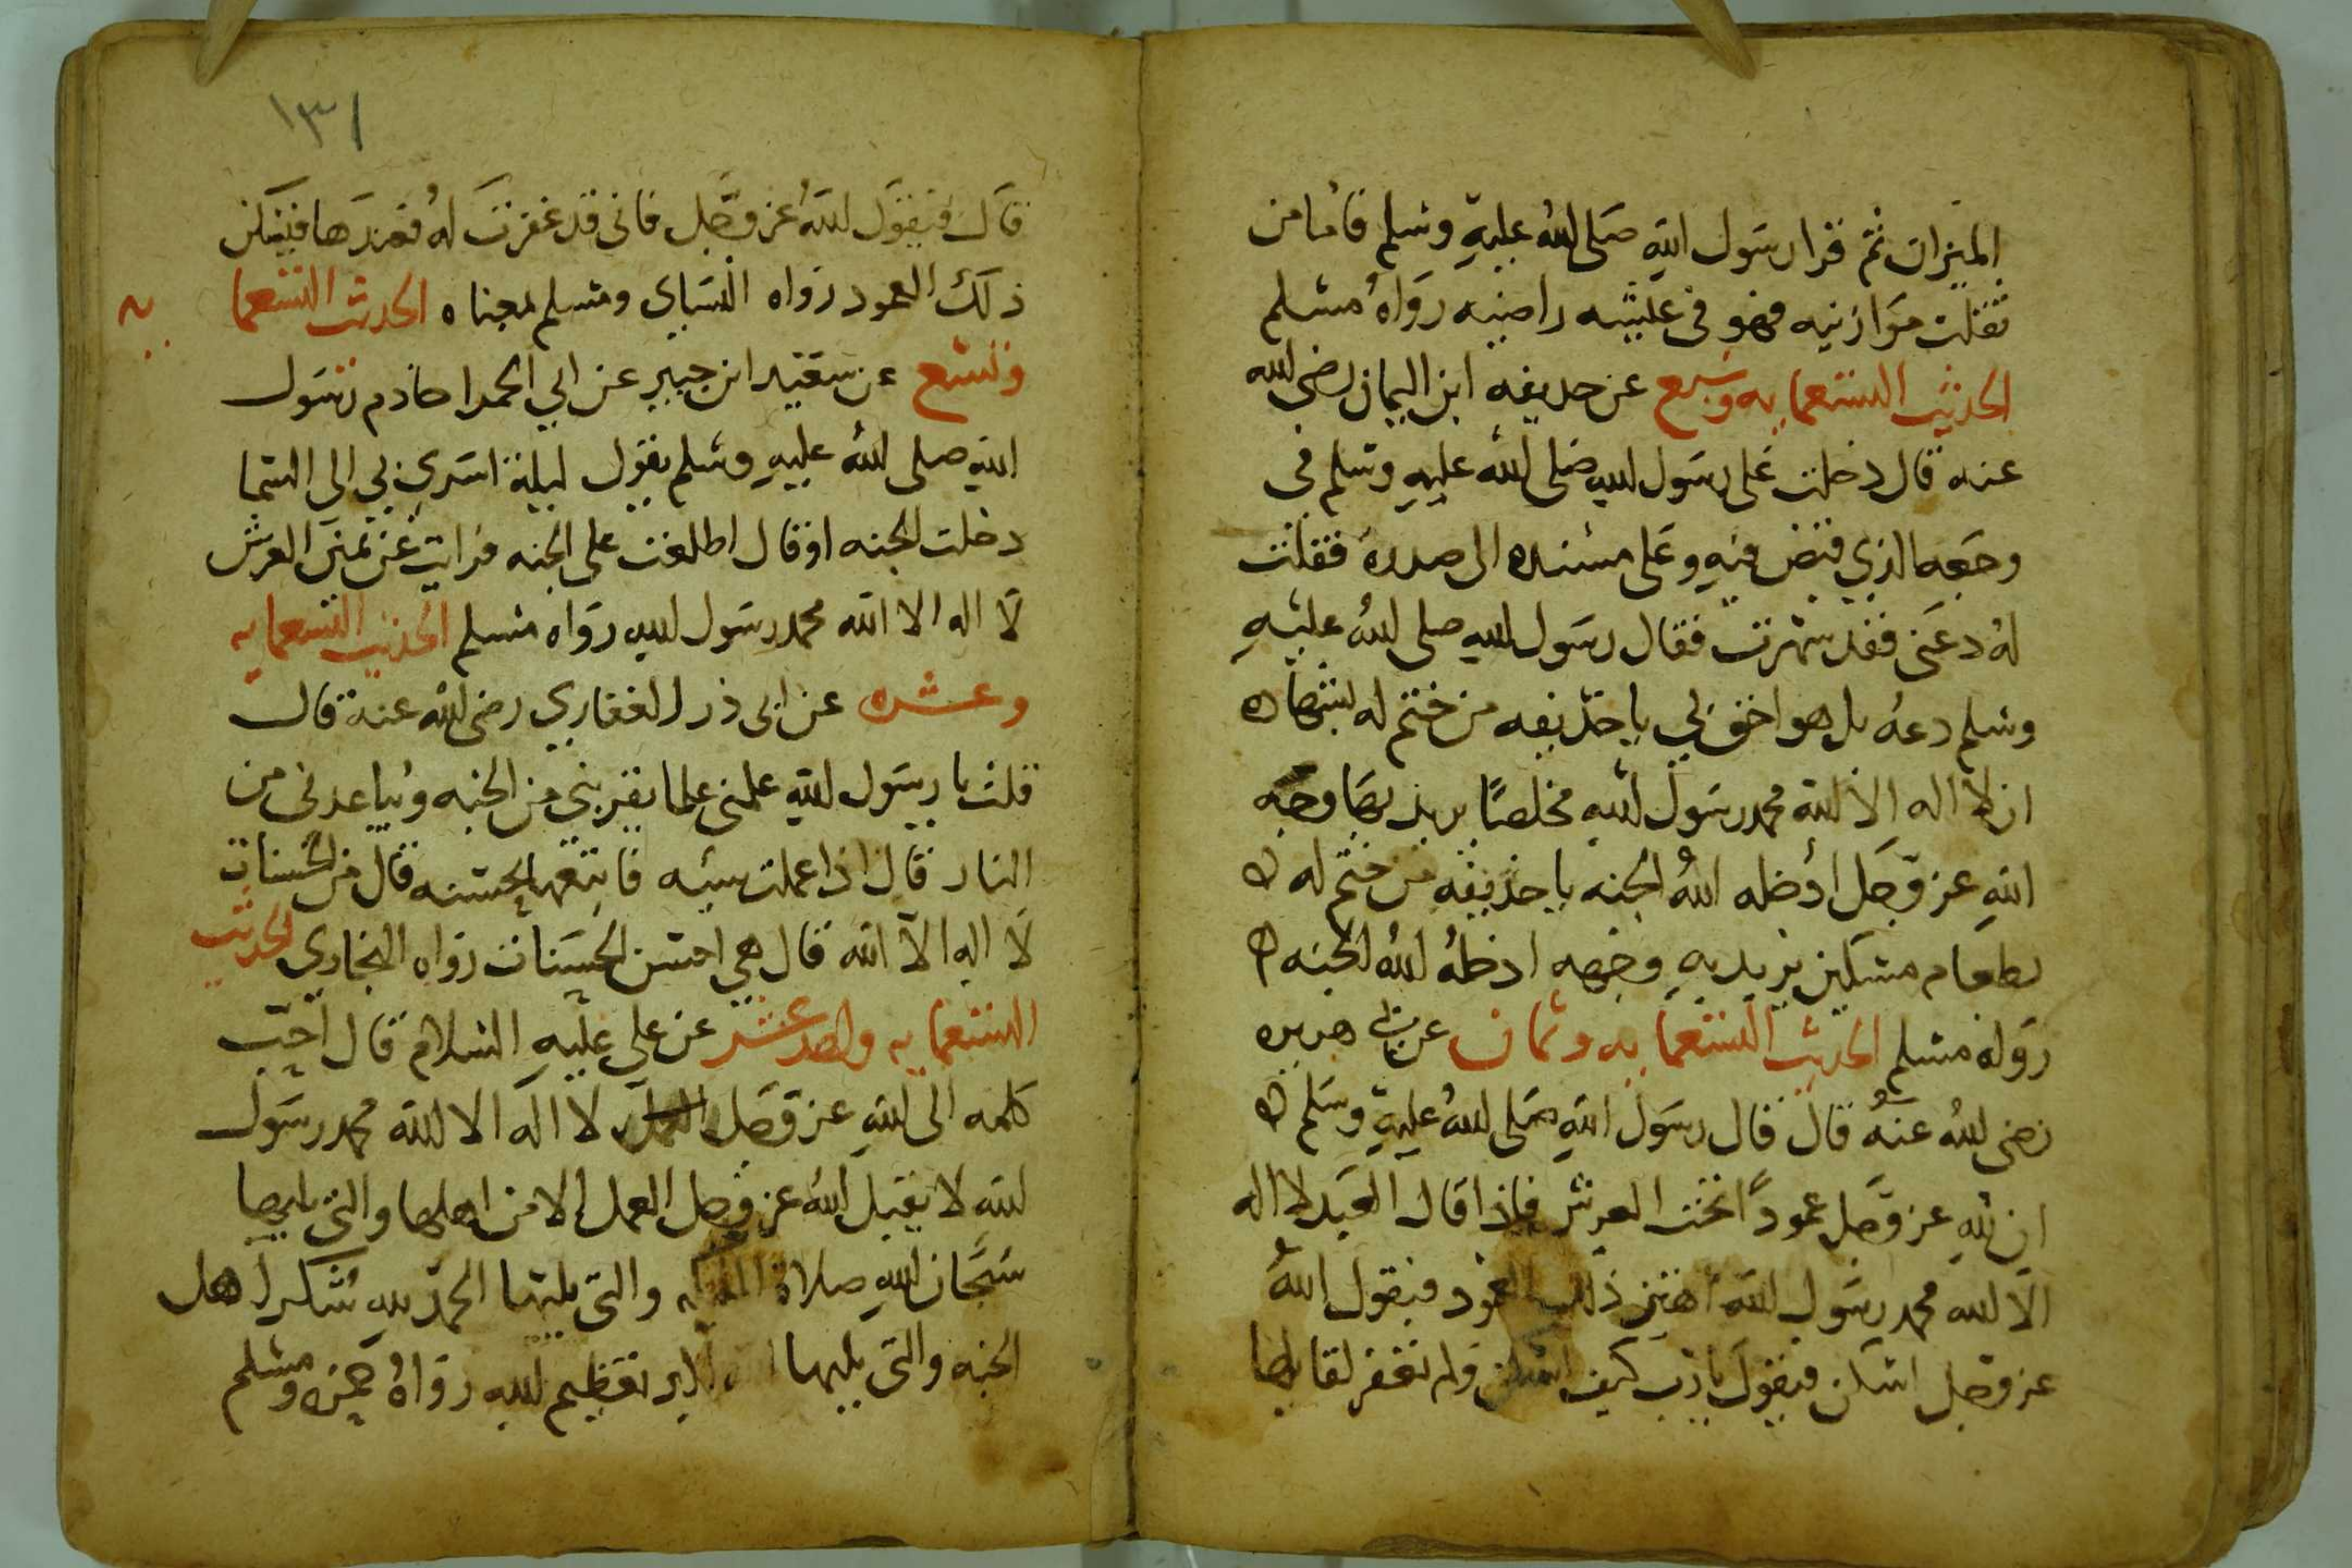 الميزان ثم قرا رسول الله صلى الله عليه وسلم فاما من
ثقلت موازنيه فهو في عيشه راضيه رواه مسلم
الحديث التسعمايه وسبع عن حديفه ابن اليمان رضى الله
عنه قال دخلت على رسول الله صلى الله عليه وسلم في
وجعه الذي قبض فيه وعلى مسنده الى صدره فقلت
له دعنى فقد سهرت فقال رسول الله صلى الله عليه
وسلم دعه بل هو اخق لي يا حذيفه من ختم له بشهاده
ان لا اله الا الله محمد رسول الله مخلصا يريد بها وجه
الله عز وجل ادخله الله الجنه يا حذيفه من ختم له
بطعام مسكين يريد به وجهه ادخله الله الجنه
رواه مسلم الحديث التسعمايه وثمان عن ابي هريره
رضى الله عنه قال قال رسول الله صلى الله عليه وسلم
ان لله عز وجل عمودا تحت العرش فاذا قال العبد لا اله
الا الله محمد رسول الله اهتز ذلك العمود فيقول الله
عز وجل اسكن فيقول يا رب كيف اسكن ولم تغفر لقايلها
١٣١
قال فيقول الله عز وجل فانى قد غفرت له فعندها فيسكن
ذلك العمود رواه النساى ومسلم بمعناه الحديث التسعما
يه
وتسع عن سعيد ابن جبير عن ابي الحمرا خادم رسول
الله صلى الله عليه وسلم يقول ليلة اسري بي الى السما
دخلت الجنه او قال اطلعت على الجنه فرايت عن يمين العرش
لا اله الا الله محمد رسول الله رواه مسلم الحديث التسعمايه
وعشره عن ابى ذر الغفاري رضى الله عنه قال
قلت يا رسول الله علمنى علما يقربني من الجنه ويباعدنى من
النار قال اذا عملت سيئه فاتبعها بحسنه قال من الحسنات
لا اله الا الله قال هي احسن الحسنات رواه البخاري الحديث
التسعمايه واحد عشر عن على عليه السلام قال احب
كلمه الى الله عز وجل لا اله الا الله محمد رسول
الله لا يقبل الله عز وجل العمل الا من اهلها والتى يليها
سبحان الله صلاة الملايكه والتى يليها الحمد لله شكر اهل
الجنه والتى يليها الله اكبر تعظيم لله رواه ومسلم